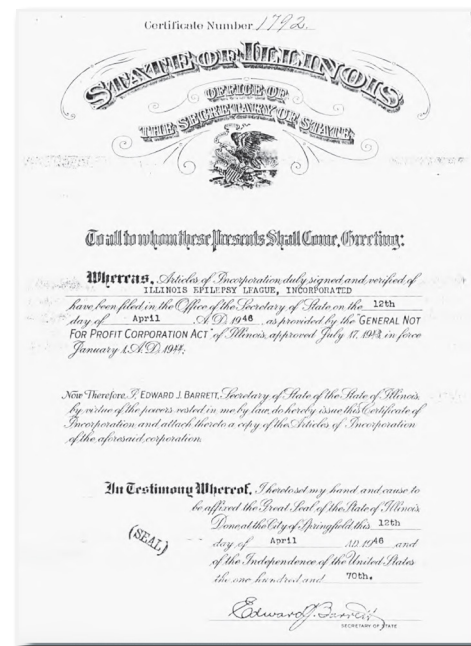 Certificate Number 1792.
STATE OF ILLINOIS
OFFICE OF
THE SECRETARY OF STATE
To all to whom these Presents Shall Come, Greeting:
Whereas, Articles of Incorporation duly signed and verified of
ILLINOIS EPILEPSY LEAGUE, INCORPORATED
have been filed in the Office of the Secretary of State on the 12th
day of April A.D. 1946 as provided by the "GENERAL NOT
FOR PROFIT CORPORATION ACT" of Illinois, approved July 17, 1943, in force
January 1, A.D. 1944;
Now Therefore, I, EDWARD J. BARRETT, Secretary of State of the State of Illinois,
by virtue of the powers vested in me by law, do hereby issue this Certificate of
Incorporation and attach thereto a copy of the Articles of Incorporation
of the aforesaid corporation.
In Testimony Whereof, I hereto set my hand and cause to
be affixed the Great Seal of the State of Illinois,
Done at the City of Springfield this 12th
(SEAL)
day of April A.D. 1946 and
of the Independence of the United States
the one hundred and 70th.
Edward J. Barrett
SECRETARY OF STATE